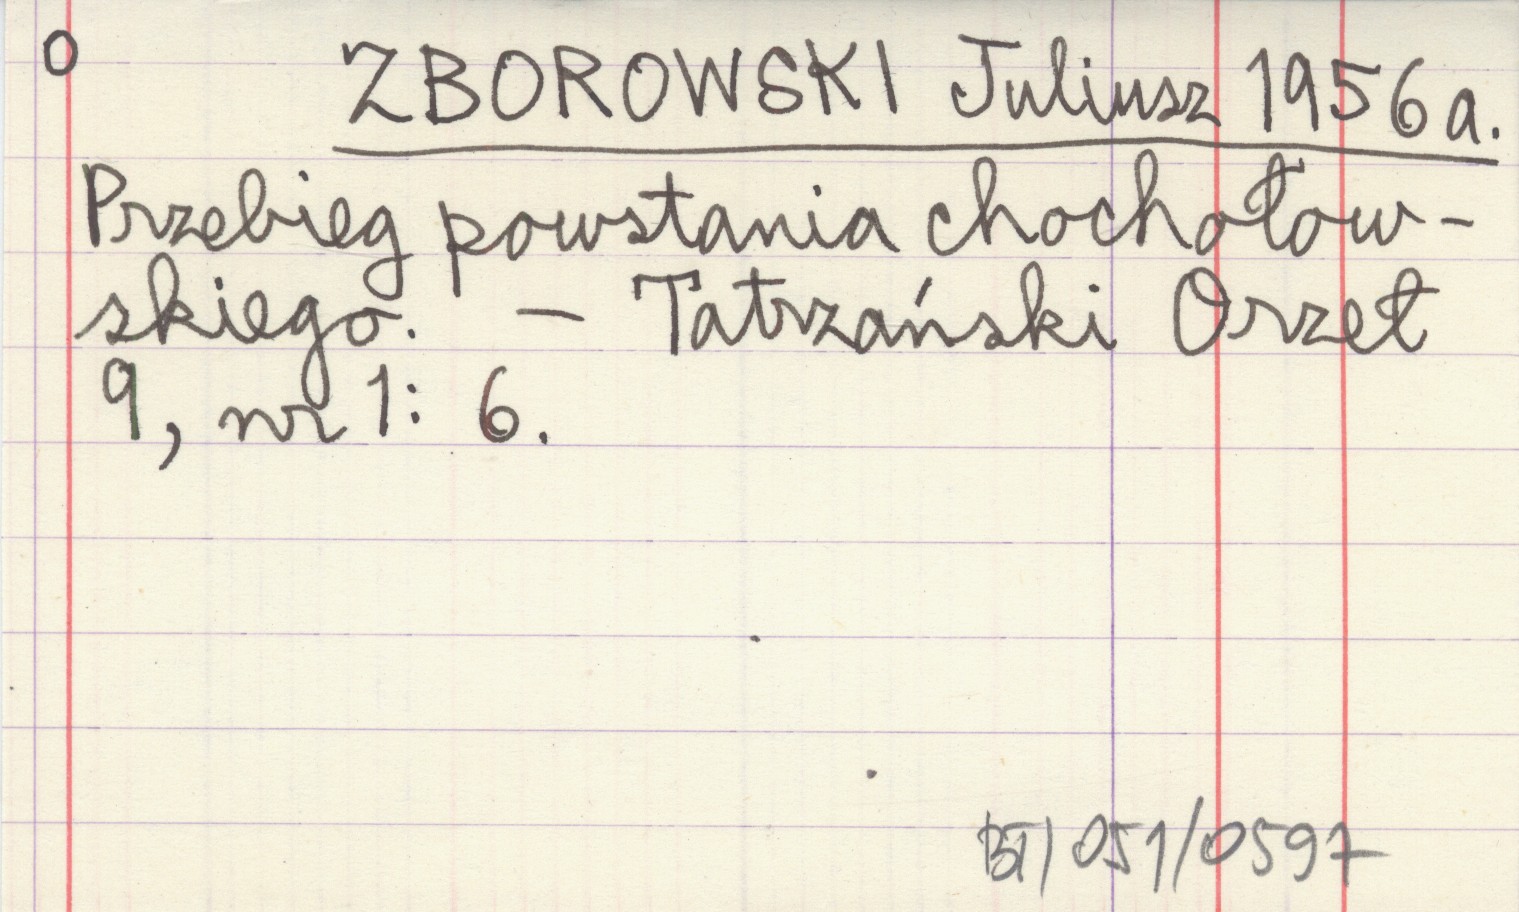 O ZBOROWSKI Juliusz 1956 a.
Przebieg powstania chochołow-
skiego. – Tatrzański Orzeł
9, nr 1: 6.
BT/051/0597